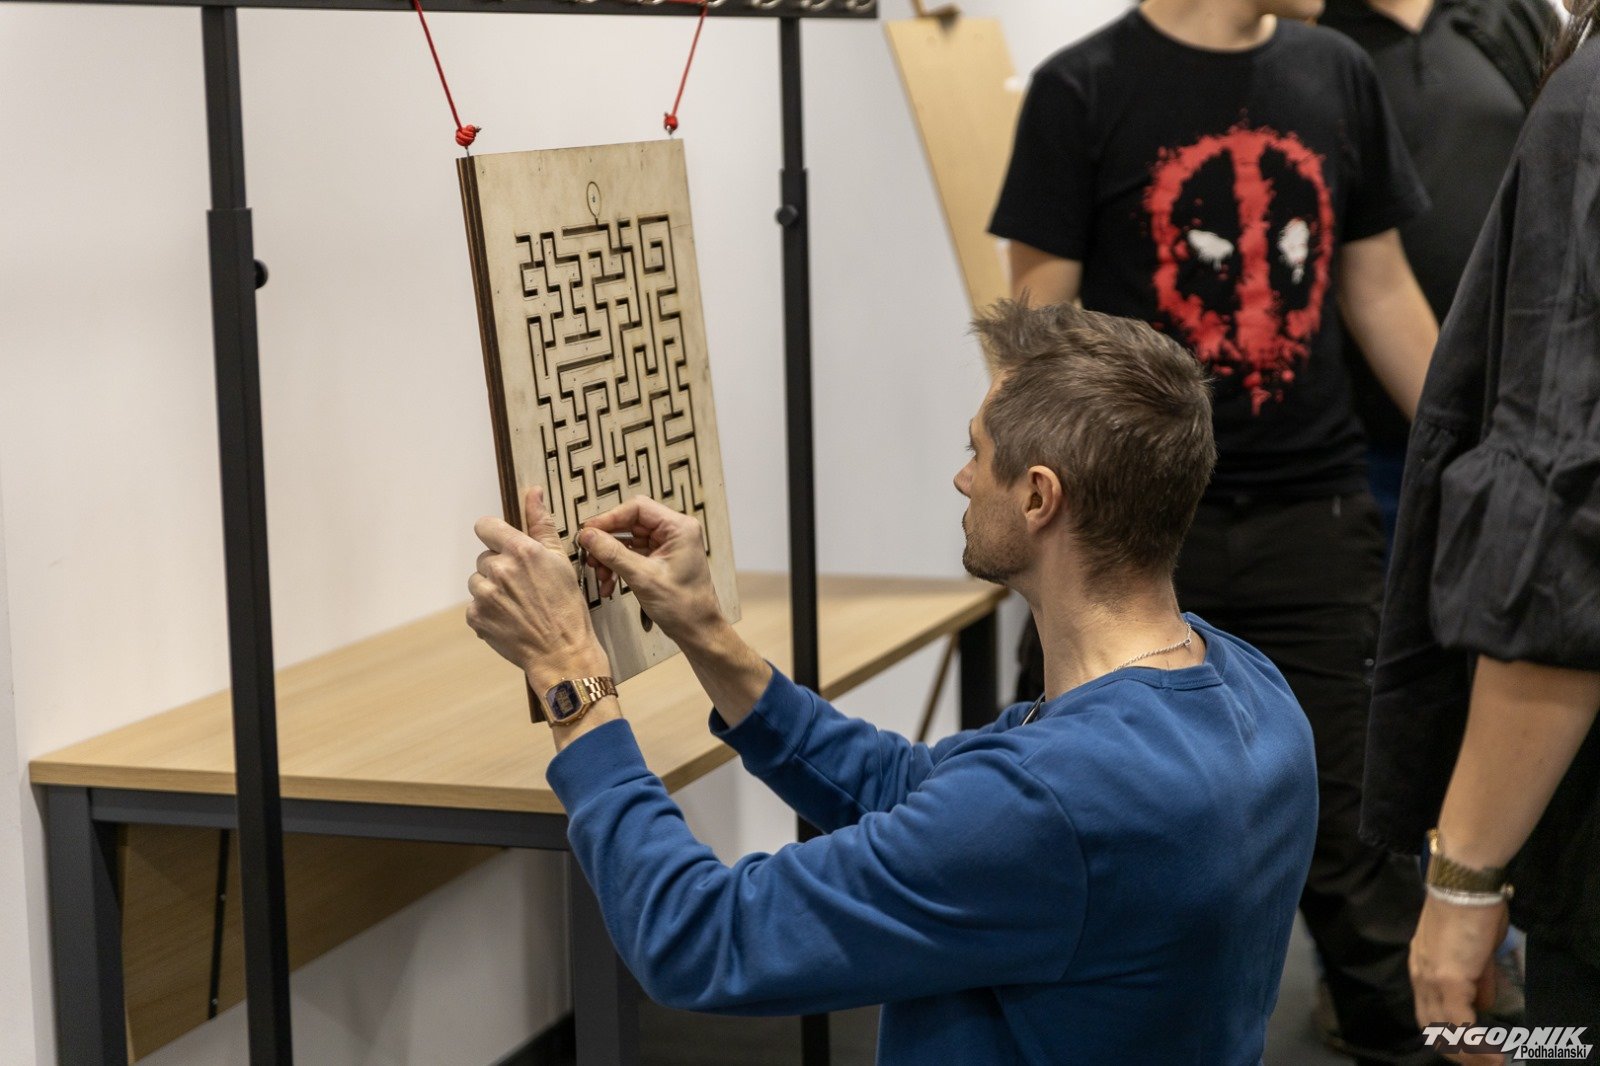 TYGODNIK
Podhalański